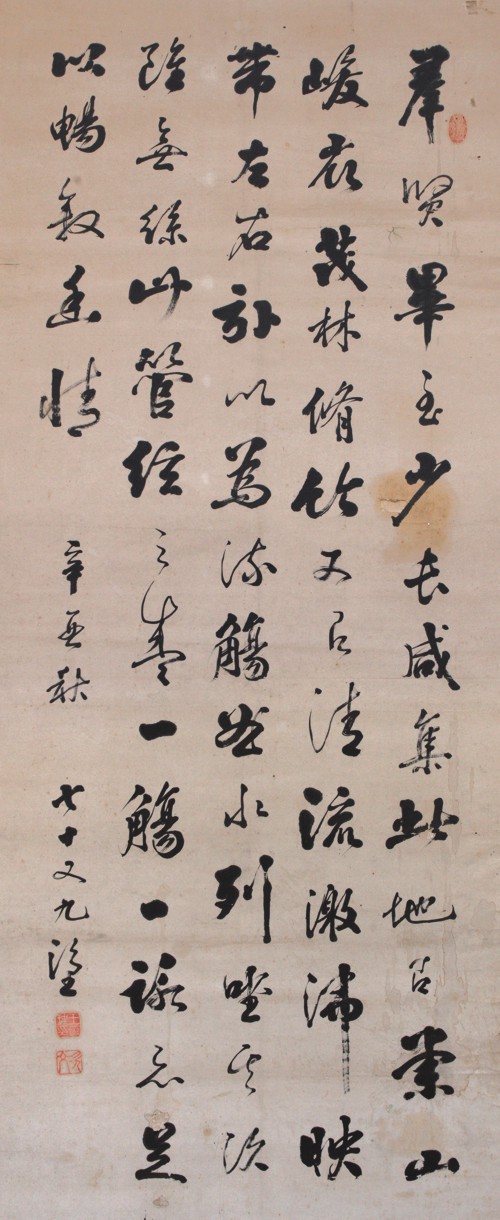 羣賢畢至少長咸集此地有崇山
峻領茂林脩竹又有清流激湍映
帶左右引以為流觴曲水列坐其次
雖無絲竹管絃之盛一觴一詠亦足
以暢敘幽情 辛亥秋 七十又九